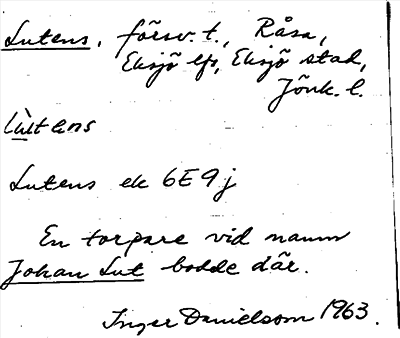 Lutens, försv. t., Råsa,
Eksjö lfs, Eksjö stad,
Jönk. l.
lùtens
Lutens ek 6E9j
En torpare vid namn
Johan Lut bodde där.
Inger Danielsson 1963.